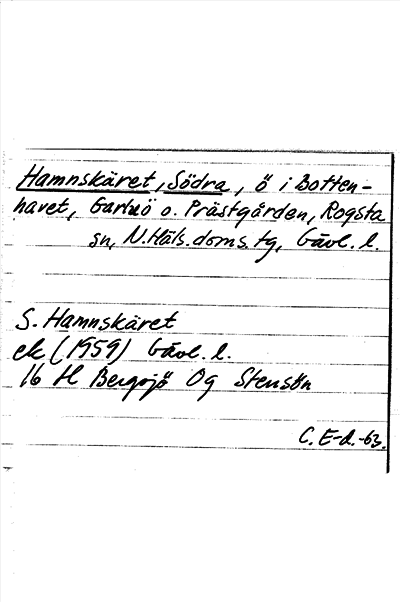 Hamnskäret, Södra, ö i Botten-
havet, Garkö o. Prästgården, Rogsta
sn, N.Häls.doms.tg, Gävl. l.
S. Hamnskäret
ek (1959) Gävl. l.
16 H Bergsjö Og Stensön
C. E-d.-63.